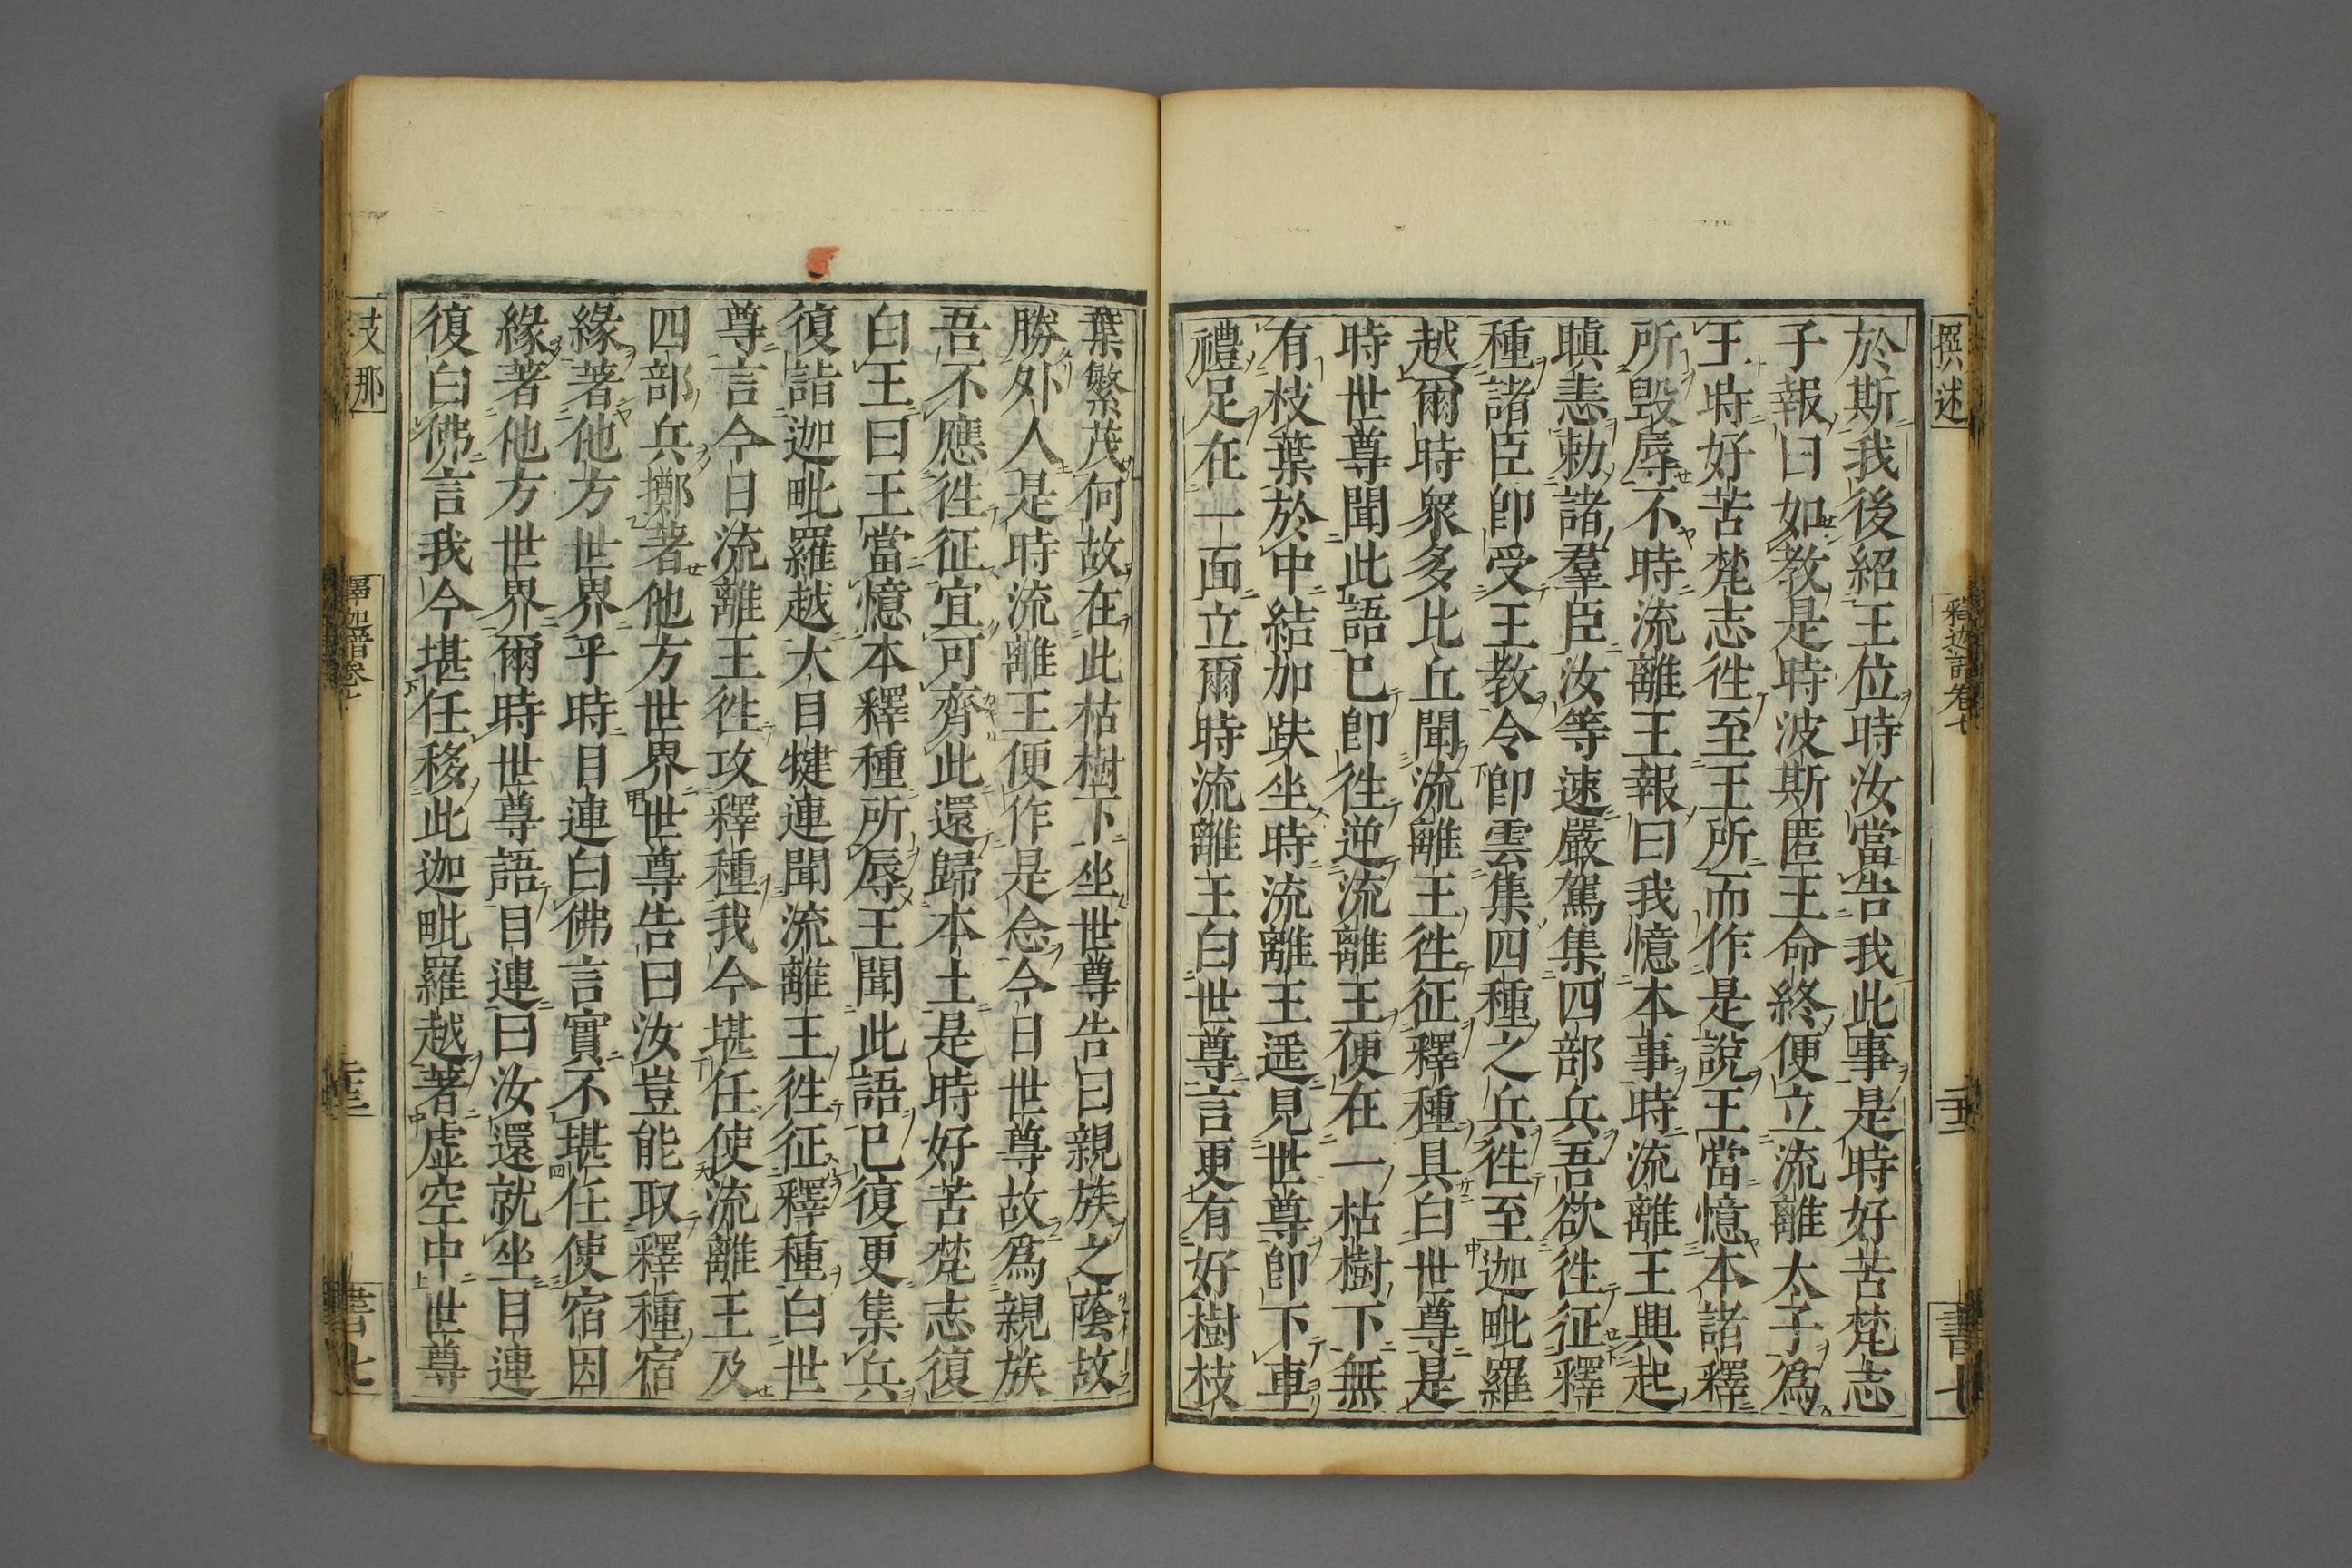 撰述
釋迦譜卷七
書七
於斯我後紹王位時汝當告我此事是時好苦梵志
子報曰如教是時波斯匿王命終便立流離太子爲
王時好苦梵志徃至王所而作是說王當憶本諸釋
所毀辱不時流離王報曰我憶本事時流離王興起
瞋恚勅諸羣臣汝等速嚴駕集四部兵吾欲徃征釋
種諸臣卽受王教令卽雲集四種之兵徃至迦毗羅
越爾時衆多比丘聞流離王徃征釋種具白世尊是
時世尊聞此語已卽徃逆流離王便在一枯樹下無
有枝葉於中結加趺坐時流離王遥見世尊卽下車
禮足在一面立爾時流離王白世尊言更有好樹枝
葉繁茂何故在此枯樹下坐世尊告曰親族之蔭故
勝外人是時流離王便作是念今日世尊故爲親族
吾不應徃征宜可齊此還歸本土是時好苦梵志復
白王曰王當憶本釋種所辱王聞此語已復更集兵
復詣迦毗羅越大目犍連聞流離王徃征釋種白世
尊言今日流離王徃攻釋種我今堪任使流離王及
四部兵擲著他方世界世尊告曰汝豈能取釋種宿
緣著他方世界乎時目連白佛言實不堪任使宿因
緣著他方世界爾時世尊語目連曰汝還就坐目連
復白佛言我今堪任移此迦毗羅越著虛空中世尊
支那
釋迦譜卷七
書七